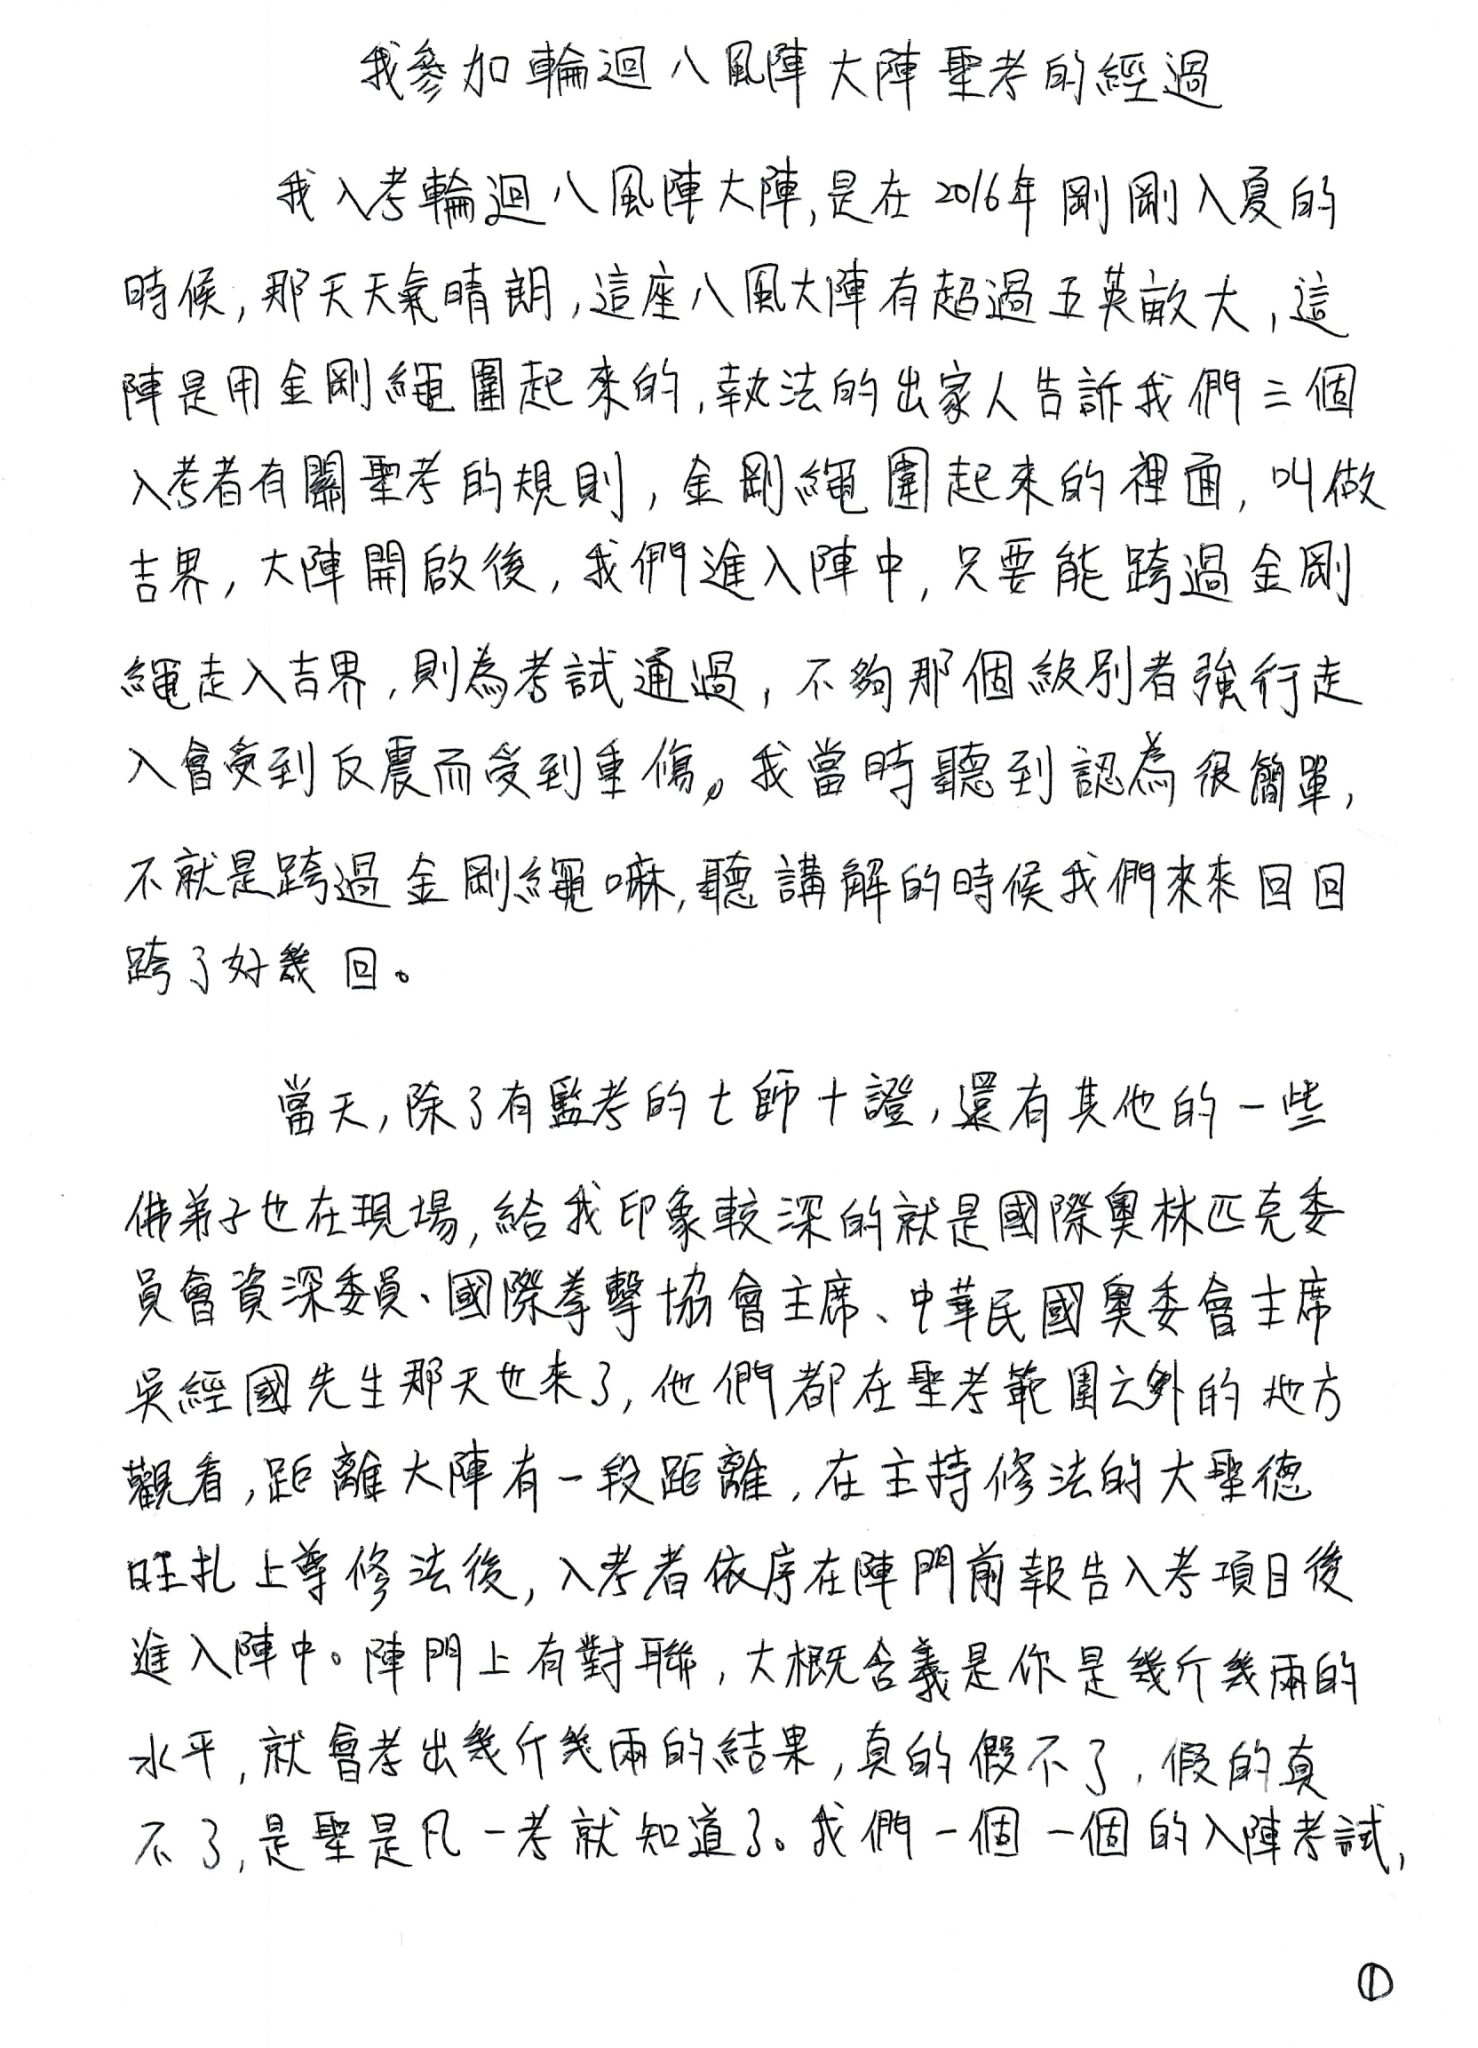 我參加輪迴八風陣大陣聖考的經過
我入考輪迴八風陣大陣,是在2016年剛剛入夏的
時候,那天天氣晴朗,這座八風大陣有超過五英畝大,這
陣是用金剛繩圍起來的,執法的出家人告訴我們三個
入考者有關聖考的規則,金剛繩圍起來的裡面,叫做
吉界,大陣開啟後,我們進入陣中,只要能跨過金剛
繩走入吉界,則為考試通過,不夠那個級別者強行走
入會受到反震而受到重傷。我當時聽到認為很簡單,
不就是跨過金剛繩嘛,聽講解的時候我們來來回回
跨了好幾回。
當天,除了有監考的七師十證,還有其他的一些
佛弟子也在現場,給我印象較深的就是國際奧林匹克委
員會資深委員、國際拳擊協會主席、中華民國奧委會主席
吳經國先生那天也來了,他們都在聖考範圍之外的地方
觀看,距離大陣有一段距離,在主持修法的大聖德
旺扎上尊修法後,入考者依序在陣門前報告入考項目後
進入陣中。陣門上有對聯,大概含義是你是幾斤幾兩的
水平,就會考出幾斤幾兩的結果,真的假不了,假的真
不了,是聖是凡一考就知道了。我們一個一個的入陣考試,
①